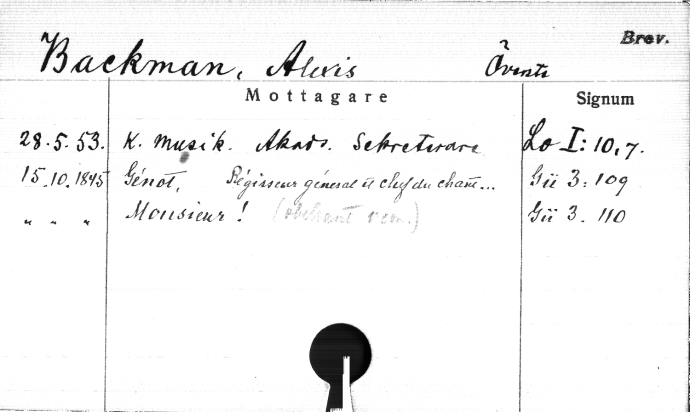 Brev.
Backman, Alexis Överste
Mottagare Signum
28.5.53. K. Musik. Akads. Sekreterare Lo I: 10,7.
15.10.1845 Génot, Régisseur général et chef du chant... Gü 3: 109
" " " Monsieur! (obekant vem.) Gü 3. 110